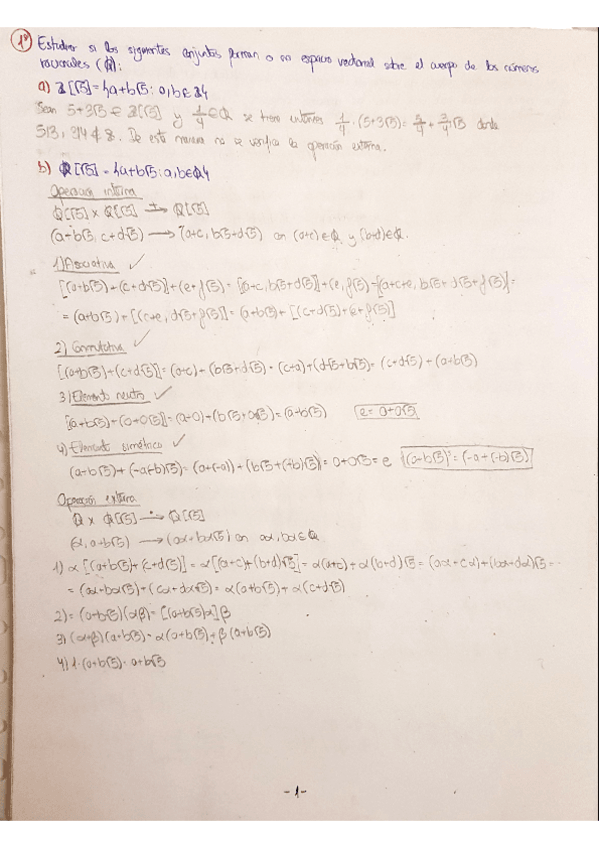 1º Estudiar si los siguientes conjuntos forman o no espacio vectorial sobre el cuerpo de los números
racionales (Q):
a) Z[√5] = {a+b√5 : a,b∈Z}
Sean 5+3√5 ∈ Z[√5] y 1/4 ∈ Q se tiene entonces 1/4 · (5+3√5) = 5/4 + 3/4 √5 donde
De esta manera no se verifica la operación externa.
b) Q[√5] = {a+b√5 : a,b∈Q}
Operación interna
Q[√5] x Q[√5] +→ Q[√5]
(a+b√5, c+d√5) → (a+c, b√5+d√5) con (a+c)∈Q y (b+d)∈Q.
1) Asociativa ✓
[(a+b√5)+(c+d√5)]+(e+f√5) = [(a+c, b√5+d√5)]+(e, f√5) = [a+c+e, b√5+d√5+f√5] =
= (a+b√5)+[(c+e, d√5+f√5)] = (a+b√5)+[(c+d√5)+(e+f√5)]
2) Conmutativa ✓
[(a+b√5)+(c+d√5)] = (a+c)+(b√5+d√5) = (c+a)+(d√5+b√5) = (c+d√5)+(a+b√5)
3) Elemento neutro ✓
[(a+b√5)+(0+0√5)] = (a+0)+(b√5+0√5) = (a+b√5) e = 0+0√5
4) Elemento simétrico ✓
(a+b√5)+(-a+(-b)√5) = (a+(-a))+(b√5+(-b)√5) = 0+0√5 = e (a+b√5)' = (-a+(-b)√5)
Operación externa
Q x Q[√5] ·→ Q[√5]
(α, a+b√5) → (aα+bα√5) con aα, bα∈Q
1) α[(a+b√5)+(c+d√5)] = α[(a+c)+(b+d)√5] = α(a+c)+α(b+d)√5 = (aα+cα)+(bα+dα)√5 =
= (aα+bα√5)+(cα+dα√5) = α(a+b√5)+α(c+d√5)
2) = (a+b√5)(αβ) = [(a+b√5)α]β
3) (α+β)(a+b√5) = α(a+b√5)+β(a+b√5)
4) 1·(a+b√5) = a+b√5
-1-